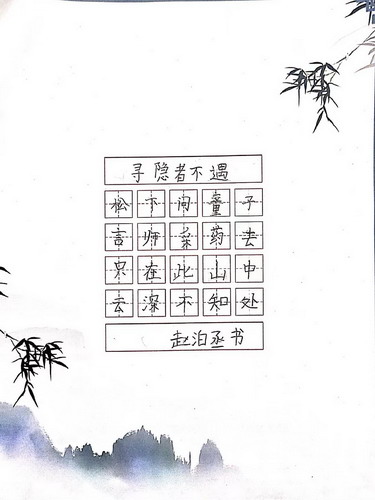 寻隐者不遇
松下问童子
言师采药去
只在此山中
云深不知处
赵泊丞书